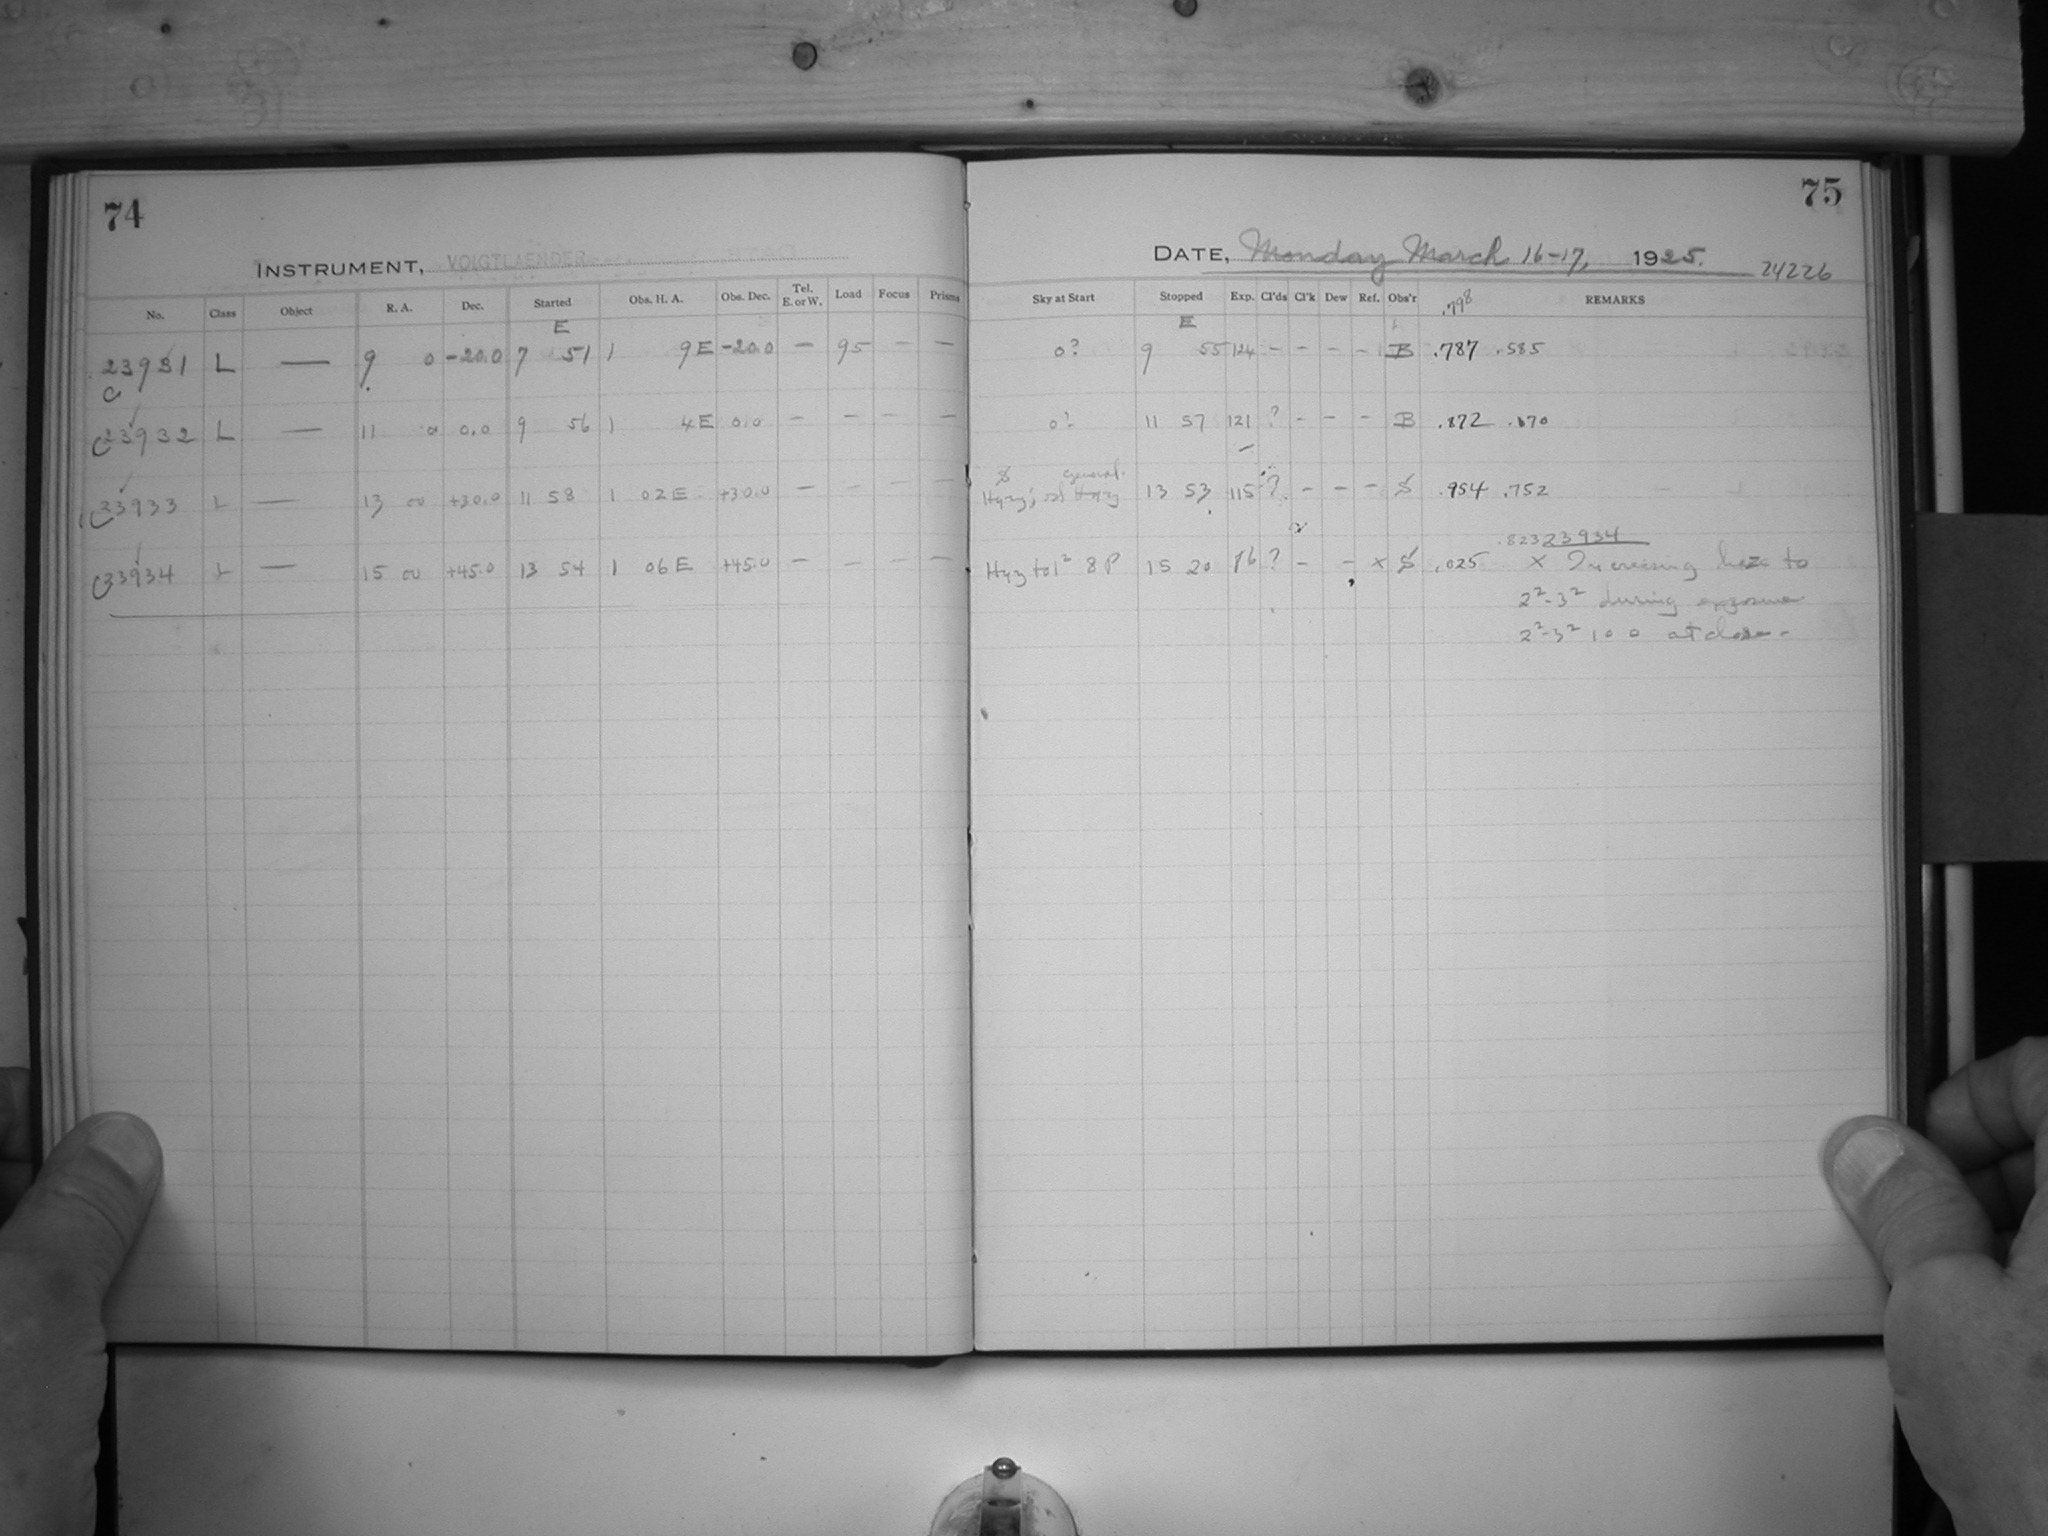 74
INSTRUMENT, VOIGTLAENDER
No. Class Object R. A. Dec. Started Obs. H. A. Obs. Dec. Tel. E. or W. Load Focus Prisms
E
23931 L — 9 0 -20.0 7 51 1 9 E -20.0 — 95 — —
C
C23932 L — 11 0 0.0 9 56 1 4 E 0.0 — — — —
C23933 L — 13 00 +30.0 11 58 1 02 E +30.0 — — — —
C23934 L — 15 00 +45.0 13 54 1 06 E +45.0 — — — —
75
DATE, Monday March 16-17, 1925.
24226
Sky at Start Stopped Exp. Cl'ds Cl'k Dew Ref. Obs'r .798 REMARKS
E
0? 9 55 124 - - - - B .787 .585
0? 11 57 121 ? - - - B .872 .670
general.
Hazy; 13 53 115 ? - - - .954 .752
.823 23934
Hzy to 1² 8 P 15 20 86 ? - - x .025 x Increasing haze to
2²-3² during exposure
2²-3² 10 0 at close.